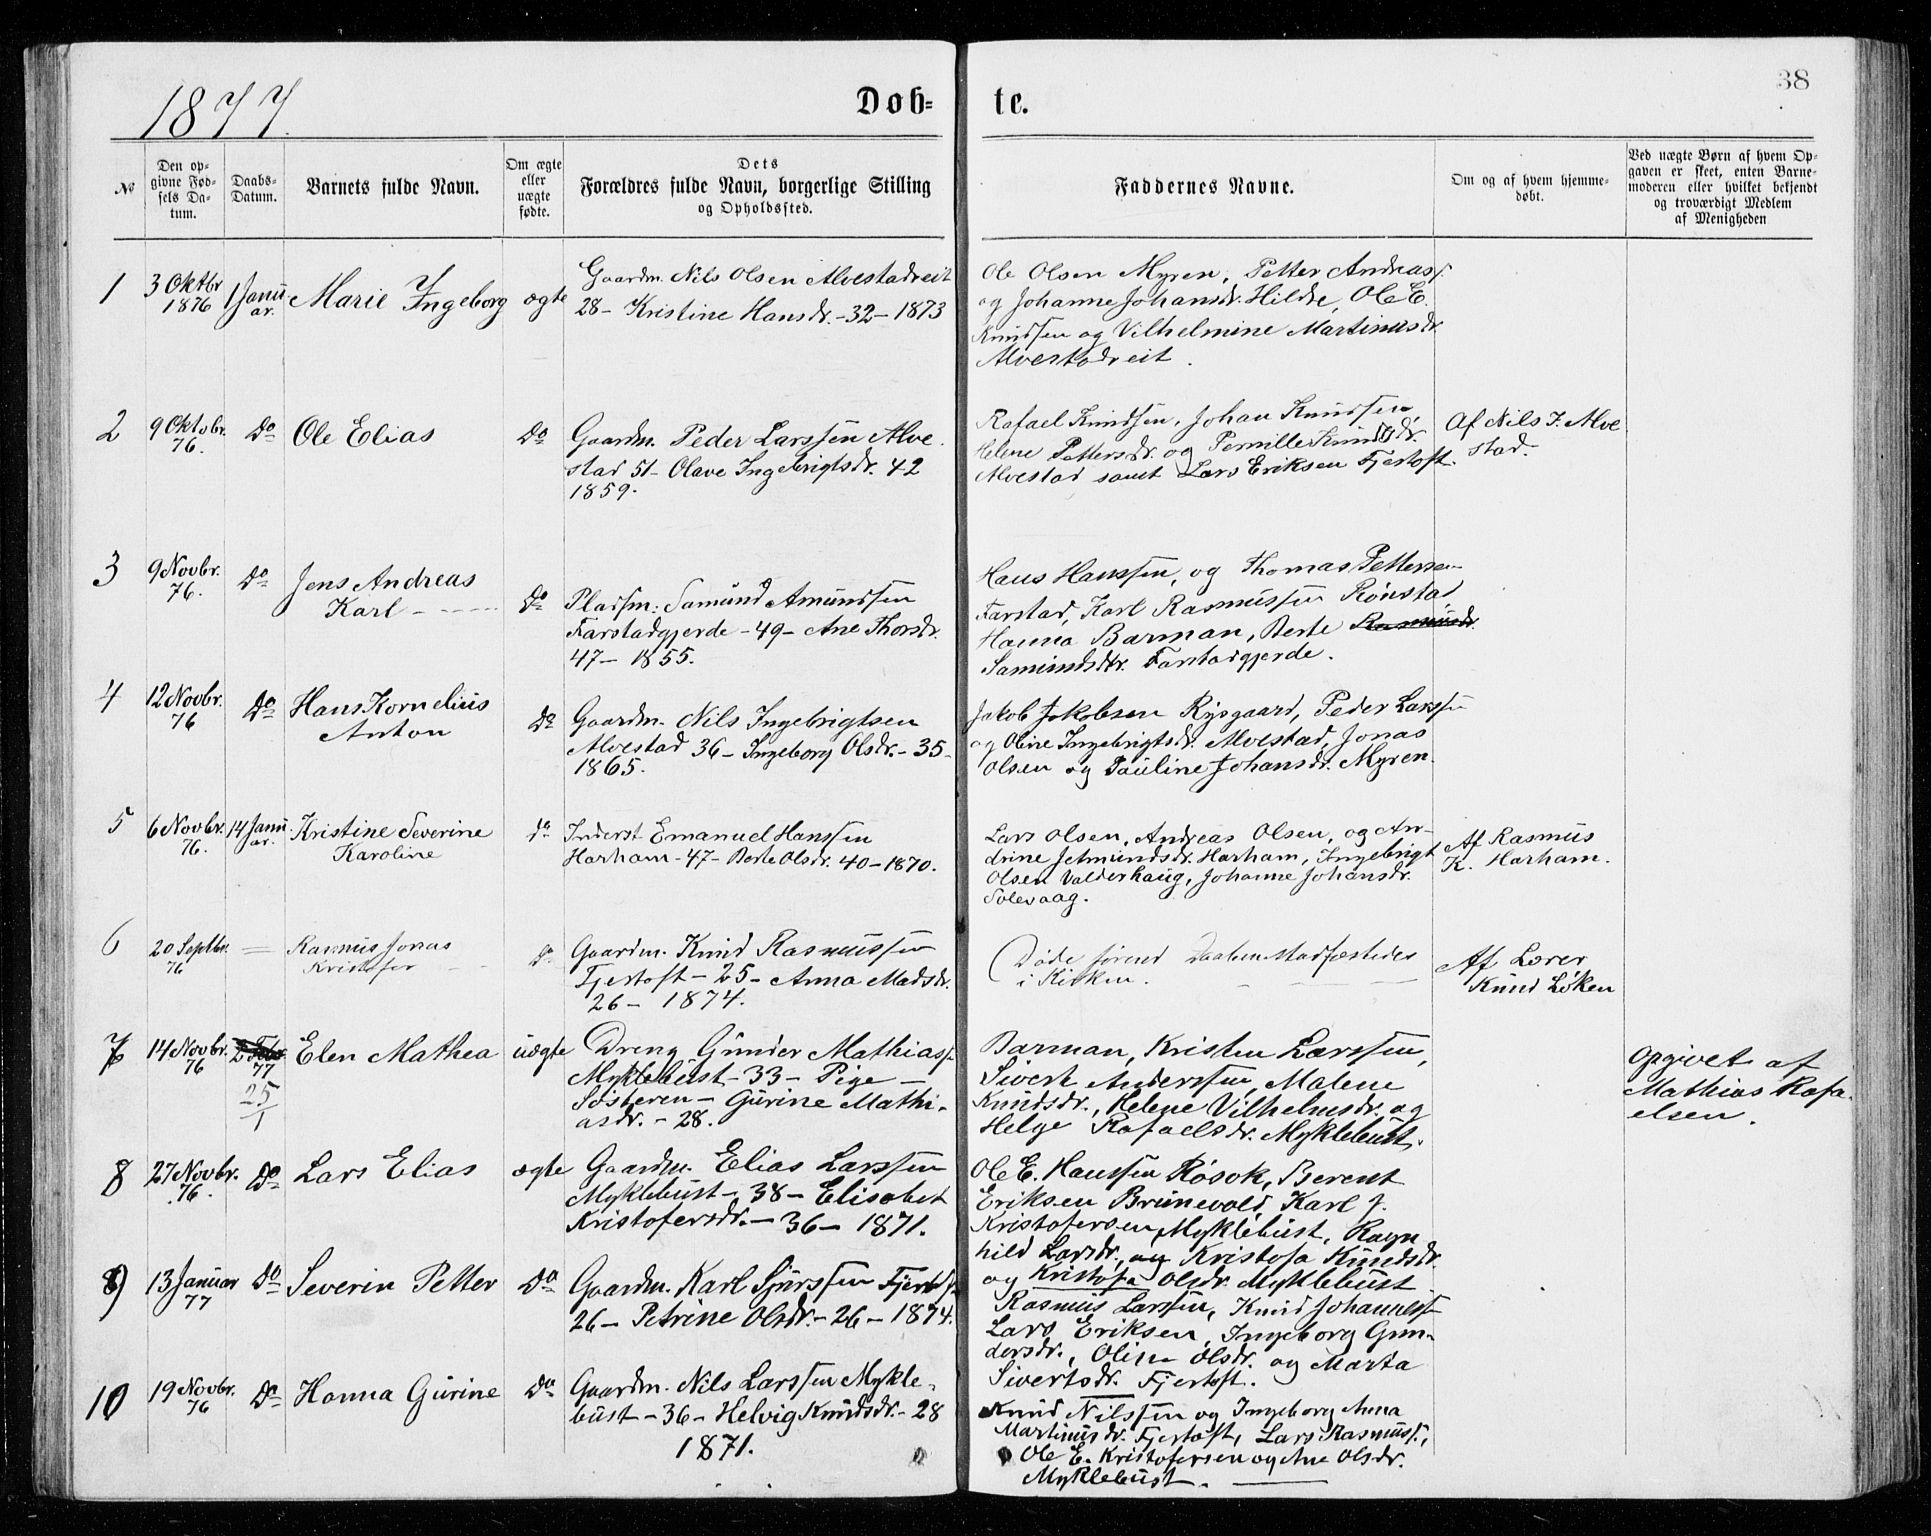 38
1877.
Døb=
te.
№
Den op=
givne Fød=
sels Da=
tum.
Daabs=
Datum.
Barnets fulde Navn.
Om ægte
eller
uægte
fødte.
Dets
Forældres fulde Navn, borgerlige Stilling
og Opholdssted.
Faddernes Navne.
Om og af hvem hjemme=
døbt.
Ved uægte Børn af hvem Op=
gaven er skeet, enten Barne=
moderen eller hvilket bekjendt
og troværdigt Medlem
af Menigheden
1
3 Oktbr
1876
1 Janu
ar.
Marie Ingeborg
ægte
Gaardm. Nils Olsen Alvestadreit
28 - Kristine Hansdr. - 32 - 1873
Ole Olsen Myren, Petter Andreass.
og Johanne Johansdr. Hildre, Ole E.
Knudsen og Vilhelmine Martinusdr.
Alvestadreit.
2
9 Oktobr.
76.
Do
Ole Elias
Do
Gaardm. Peder Larssen Alve
stad 51 - Olave Ingebrigtsdr. 42
1859.
Rafael Knudsen, Johan Knudsen,
Helene Pettersdr. og Pernille Knudsdr.
Alvestad samt Lars Eriksen Fjertoft.
Af Nils I. Alve
stad.
3
9 Novbr.
76.
Do
Jens Andreas
Karl
Do
Pladsm: Samund Amundsen
Farstadgjerde - 49 - Ane Thorsdr.
47 - 1855.
Hans Hanssen, og Thomas Pettersen
Farstad, Karl Rasmussen Rønstad
Hanna Barman, Berte Rasmusdr.
Samundsdtr. Farstadgjerde.
4
12 Novbr.
76
Do
Hans Kornelius
Anton
Do
Gaardm. Nils Ingebrigtsen
Alvestad 36 - Ingeborg Olsdr. - 35 -
1865.
Jakob Jakobsen Rysgaard, Peder Larssen
og Oline Ingebrigtsdr. Alvestad, Jonas
Olsen og Pauline Johansdr. Myren.
5
6 Novbr.
76.
14 Janu
ar.
Kristine Severine
Karoline
Do
Inderst Emanuel Hanssen
Harham - 47 - Berte Olsdr. 40 - 1870.
Lars Olsen, Andreas Olsen, og An-
drine Jetmundsdr. Harham, Ingebrigt
Olsen Valderhaug, Johanne Johansdr.
Solevaag.
Af Rasmus
K. Harham.
6
20 Septbr.
76
Rasmus Jonas
Kristofer
Do
Gaardm. Knud Rasmussen
Fjertoft - 25 - Anna Madsdr.
26 - 1874.
Døde førend Daaben stadfæstedes
i Kirken.
Af Lærer
Knud Løken
7
14 Novbr.
76
77
25
1
Elen Mathea
uægte
Dreng Gunder Mathiass.
Myklebust - 33 - Pige -
Søsteren - Gurine Mathi-
asdr. - 28.
Barman, Kristen Larssen,
Sivert Anderssen, Malene
Knudsdr., Helene Vilhelmsdr. og
Helge Rafaelsdr. Myklebust.
Opgivet af
Mathias Rafa-
elsen.
8
27 Novbr.
76.
Do
Lars Elias
ægte
Gaardm. Elias Larssen
Myklebust - 38 - Elisabet
Kristofersdr. - 36 - 1871.
Ole E. Hanssen Røsok, Berent
Eriksen Brunevold, Karl J.
Kristofersen Myklebust, Ragn
hild Larsdr. og Kristofa Knudsdr.
og Kristofa Olsdr. Myklebust
9
13 Januar
77
Do
Severin Petter
Do
Gaardm. Karl Sjurssen Fjertoft
26 - Petrine Olsdr. - 26 - 1874.
Rasmus Larssen, Knud Johanness.
Lars Eriksen, Ingeborg Gun-
dersdr., Oline Olsdr. og Marta
Sivertsdr. Fjertoft.
10
19 Novbr.
76
Do
Hanna Gurine
Do
Gaardm. Nils Larssen Mykle-
bust - 36 - Helvig Knudsdr. - 28
1871.
Knud Nilssen og Ingeborg Anna
Martinusdr. Fjertoft, Lars Rasmuss.,
Ole E. Kristofersen og Ane Olsdr.
Myklebust.